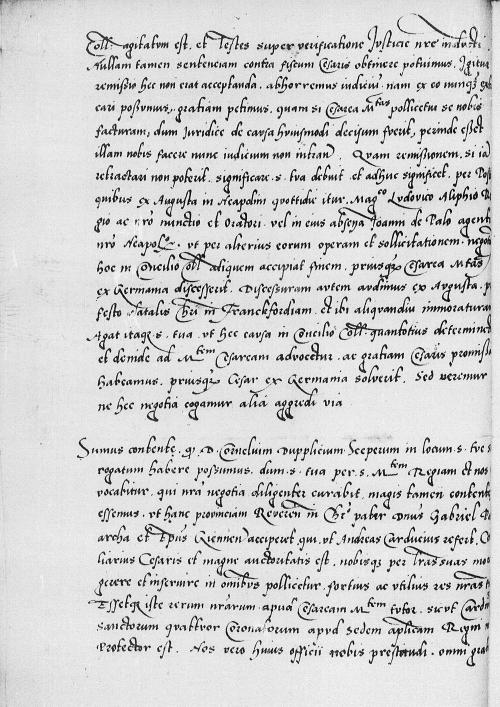 Coll: agitatum est. et Testes super verificatione Justicie nre inducti
Nullam tamen sentenciam contra fiscum Cesaris obtinere potuimus. Igitur
remissio hec non erat acceptanda. abhorremus iudiciu nam ex eo nunqz
cari possumus, gratiam petimus. quam si Cesarea Mtas pollicetur se nobis
facturam, dum Juridice de causa huiusmodi decisum fuerit, perinde esset
illam nobis facere nunc iudicium non intran. Quam remissionem. si ia
retractari non poterit. significare. s. tua debuit et adhuc significet. per Pos
quibus ex Augusta in Neapolim quottidie itur. Magco Ludovico Aliphio R
gio ac nro nunctio et Oratori. vel in eius absena Joanni de Palo agent
nro Neapol. ut per alterius eorum operam et sollicitationem. negoti
hoc in Concilio Coll aliquem accipiat finem. priusqz Cesarea Mtas
ex Germania discesserit. Discessuram autem audimus ex Augusta. p
festo Natalis Chri in Franckfordiam. et ibi aliquandiu immoratura
Agat itaqz s. tua. ut hec causa in Concilio Coll. quantotius determine
et deinde ad Mtem Cesaream advocetur. ac gratiam Cesaris promissa
habeamus. priusqz Cesar ex Germania solverit. Sed veremur
ne hec negotia cogamur alia aggredi via
Sumus contente. q D. Cornelium Dupplicium Sceperum in locum. s. tue
rogatum habere possumus. dum. s. tua per. s. Mtem Regiam et nos
vocabitur. qui nra negotia diligenter curabit. magis tamen content
essemus. ut hanc provinciam Reveren in Chro pater Dnus Gabriel
archa et Epus Viennen acciperet. qui. ut Andreas Carducius refert. Co
liarius Cesaris et magne auctoritatis est. nobisqz per lras suas mo
gerere et inservire in omibus pollicetur. fortius ac utilius res nras
Essetqz iste rerum nrarum apud Cesaream Mtem tutor. sicut Cardi
Sanctorum quattuor Coronatorum apud Sedem aplicam Regni
Protector est. Nos vero huius officii nobis prestandi. omni gra